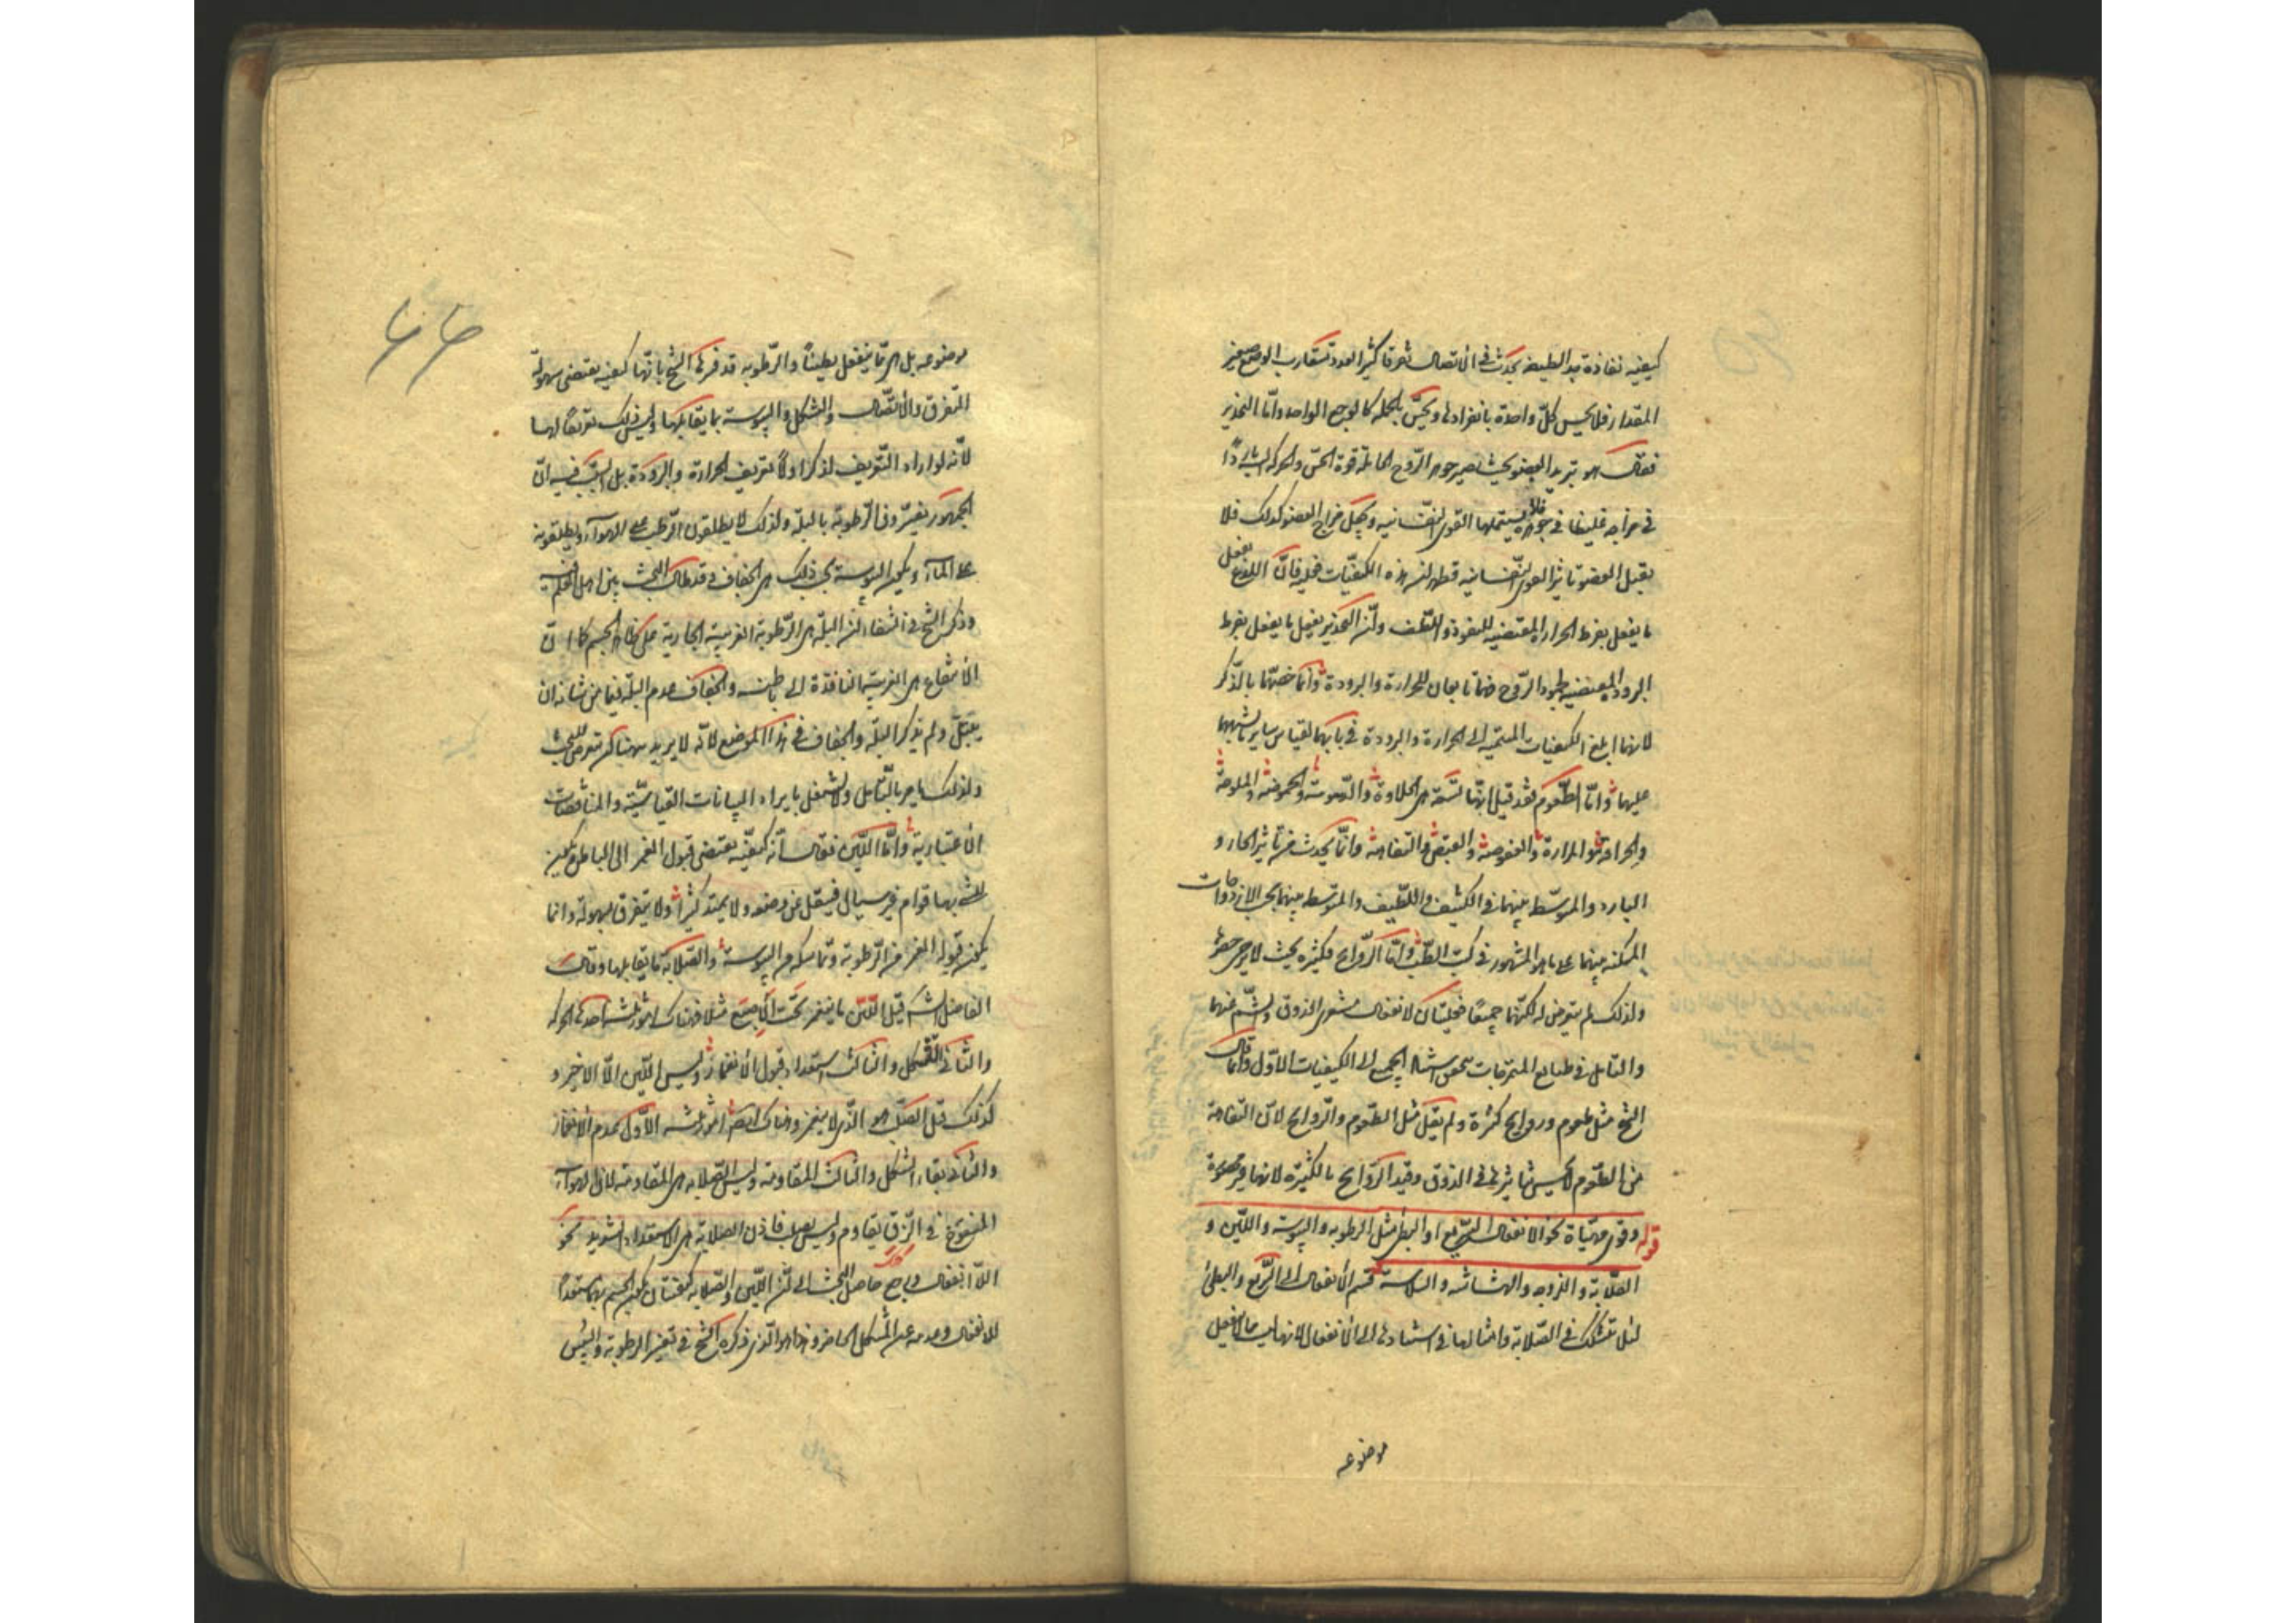 كيفية نفاذة جدا لطيفة يحدث في الاتصال تفرقا كثير العدد متقارب الوضع صغير
المقدار فلا يحس كل واحدة بانفرادها ويحس بالجملة كالوجع الواحد واما التخدير
فقال هو تبريد العضو بحيث يصير جوهر الروح الحاملة قوة الحس والحركة اليه باردا
في مزاجه غليظا في جوهره فلا يستعملها القوى النفسانية ويجعل مزاج العضو كذلك فلا
يقبل العضو تاثير القوى النفسانية فظهر ان هذه الكيفيات فعلية فان اللذع يفعل
ما يفعل بفرط الحرارة المقتضية للنفوذ واللطف وان التخدير يفعل ما يفعل بفرط
البرودة المقتضية لجمود الروح فهما تابعان للحرارة والبرودة وانما خصهما بالذكر
لانهما ابلغ الكيفيات المنتمية الى الحرارة والبرودة في بابهما ليقاس ساير ما يشبههما
عليهما واما الطعوم فقد قيل انها تسعة هي الحلاوة والدسومة والحموضة والملوحة
والحرافة والمرارة والعفوصة والقبض والتفاهة وانما يحدث من تاثير الحار و
البارد والمتوسط بينهما في الكثيف واللطيف والمتوسط بينهما بحسب الازدواجات
الممكنة بينهما على ما هو المشهور في كتب الطب واما الروايح فكثيرة بحيث لا يرجى حصرها
ولذلك لم يتعرض له لكنهما جميعا فعليتان لانفعال مشعري الذوق والشم عنهما
والتامل في طبايع الممتزجات يحقق استناد الجميع الى الكيفيات الاول وانما قال
الشيخ مثل طعوم وروايح كثيرة ولم يقل مثل الطعوم والروايح لان التفاهة
من الطعوم لا يحس بتاثيرها في الذوق وقيد الروايح بالكثيرة لانها غير محصورة
قوله وقوى مهيأة نحو الانفعال السريع او البطئ مثل الرطوبة واليبوسة واللين و
الصلابة واللزوجة والهشاشة والسلاسة قسم الانفعال الى السريع والبطئ
لئلا يتشكك في الصلابة وامثالها في استنادها الى الانفعال لانها ليست مما لا ينفعل
موضوعه
٦٦
موضوعه بل هي مما ينفعل بطيئا والرطوبة قد فسرها الشيخ بانها كيفية يقتضي سهولة
التفرق والاتصال والتشكل واليبوسة بما يقابلها وليس ذلك تعريفا لهما
لانه لو اراد التعريف لذكر اولا تعريف الحرارة والبرودة بل السبب فيه ان
الجمهور يفسرون الرطوبة بالبلة ولذلك لا يطلقون الرطب على الهواء ويطلقونه
على الماء ويكون اليبوسة بحسب ذلك هي الجفاف وقد طال البحث بين اهل العلم فيه
وذكر الشيخ في الشفاء ان البلة هي الرطوبة الغريبة الجارية على ظاهر الجسم كما ان
الانتقاع هي الغريبة النافذة الى باطنه والجفاف عدم البلة فيما من شانه ان
يبتل ولم يذكر البلة والجفاف في هذا الموضع لانه لا يريد ههنا ان يتعرض للبحث
ولذلك يامر بالتامل ولا يشتغل بايراد البيانات القياسية والمناقضات
الاعتبارية واما اللين فقال انه كيفية يقتضي قبول الغمز الى الباطن ويكون
للشئ بها قوام غير سيال فينتقل عن وضعه ولا يمتد كثيرا ولا يتفرق بسهولة وانما
يكون قبوله الغمز من الرطوبة وتماسكه من اليبوسة والصلابة ما يقابلها وقال
الفاضل الشارح قيل اللين ما ينغمز تحت الاصبع مثلا فهناك امور ثلثة احدها الحركة
والثاني التشكل والثالث استعداد قبول الانغماز وليس اللين الا الاخير و
كذلك قيل الصلب هو الذي لا ينغمز وهناك ايضا امور ثلثة الاول عدم الانغماز
والثاني بقاء الشكل والثالث المقاومة وليس الصلابة هي المقاومة لان الهواء
المنفوخ في الزق يقاوم وليس بصلب فاذن الصلابة هي الاستعداد الشديد نحو
اللاانفعال فرجع حاصل البحث الى ان اللين والصلابة كيفيتان يكون الجسم بهما مستعدا
للانفعال وعدمه عن الشكل الحاضر وهذا هو الذي ذكره الشيخ في تفسير الرطوبة واليبس